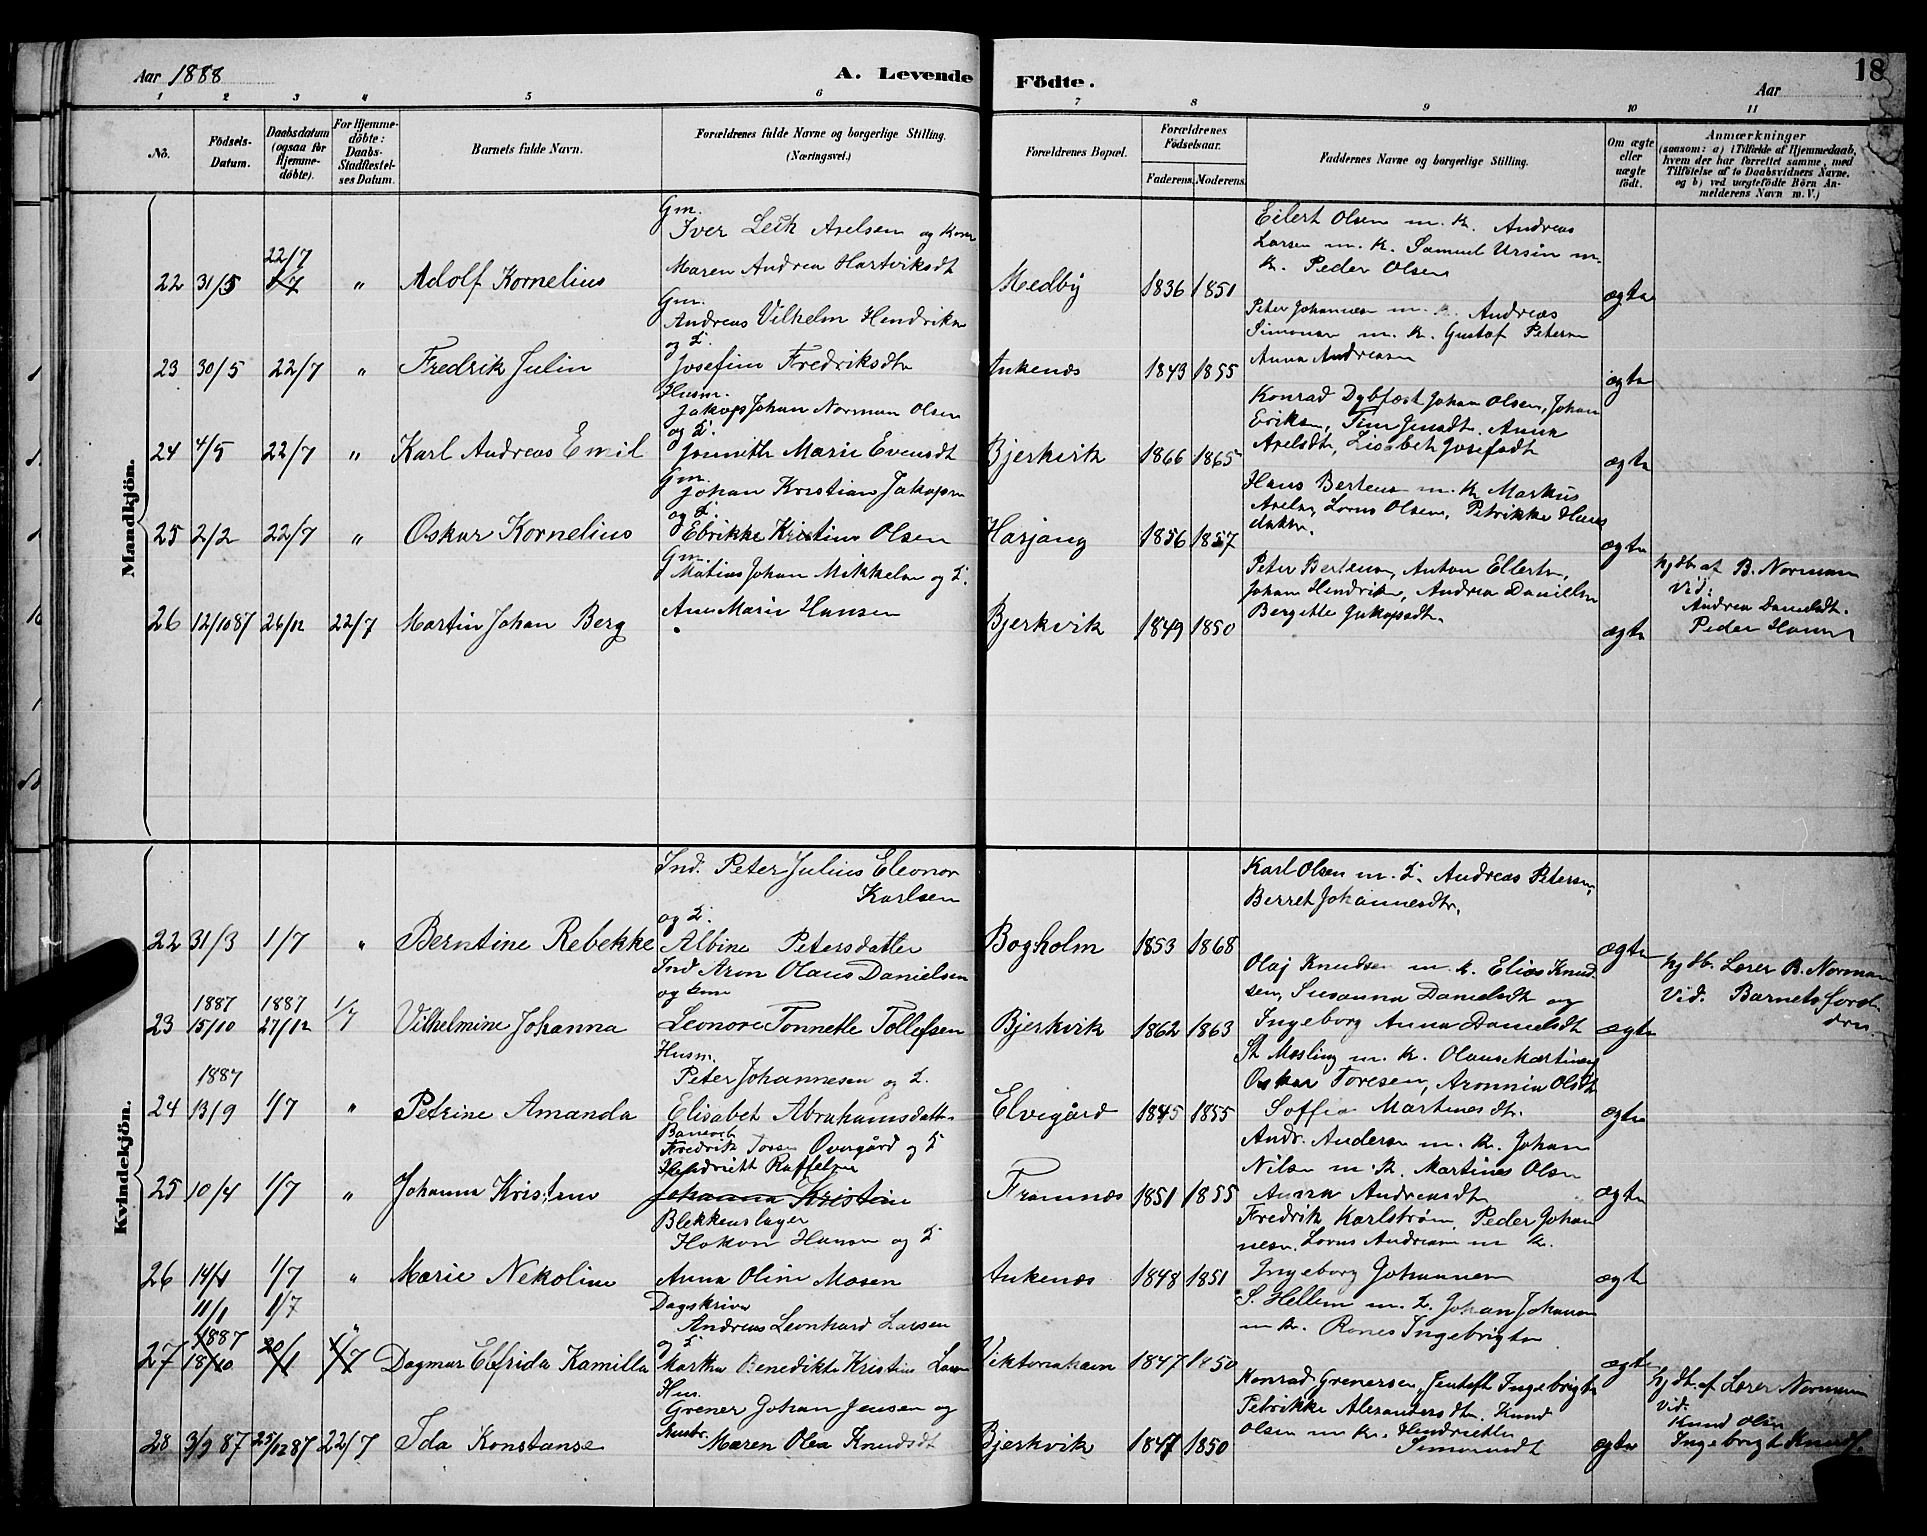 Aar 1888 A. Levende Födte. Aar 18
1 2 3 4 5 6 7 8 9 10 11
No.
Födsels-Datum.
Daabsdatum (ogsaa for Hjemme-döbte).
For Hjemme-döbte: Daabs-Stadfæstel-ses Datum.
Barnets fulde Navn.
Forældrenes fulde Navne og borgerlige Stilling. (Næringsvei.)
Forældrenes Bopæl.
Forældrenes Födselsaar.
Faderens. Moderens.
Faddernes Navne og borgerlige Stilling.
Om ægte eller uægte födt.
Anmærkninger
(saasom: a) i Tilfælde af Hjemmedaab,
hvem der har forrettet samme, med
Tilföielse af to Daabsvidners Navne,
og b) ved uægtefödte Börn An-
melderens Navn m. V.)
Mandkjön.
22 31/5 22/7 1/7 " Adolf Kornelius
Gm.
Iver Axelsen og Kone
Maren Andrea Hartviksdt
Medby 1836 1851
Eilert Olsen m. K. Andreas
Larsen m. K. Samuel Ursin m.
K. Peder Olsen
ægte
23 30/5 22/7 " Fredrik Julin
Gm.
Andreas Vilhelm Hendriksn
og H.
Josefine Fredriksdtr
Ankenæs 1843 1855
Peter Johannesen m. K. Andreas
Simonsen m. K. Gustaf Petersn
Anna Andreasen
ægte
24 4/5 22/7 " Karl Andreas Emil
Husm.
Jakop Johan Norman Olsen
og H.
Marie Evensdt
Bjerkvik 1866 1865
Konrad Johan Olsen, Johan
Eriksen, Anna
Axelsdt, Lisabet Josefsdt
ægte
25 2/2 22/7 " Oskar Kornelius
Gm.
Johan Kristian Jakopsn
og H.
Ebrikke Kristine Olsen
Harjang 1856 1857
Hans Bertens m. K. Markus
Axelsn, Lorns Olsen, Petrikke Hans
datter.
ægte
26 12/10 87 26/12 22/7 Martin Johan Berg
Gm.
Matias Johan Mikkelsn og H.
Ane Marie Hansen
Bjerkvik 1849 1850
Peter Bertens, Anton Ellertsn,
Johan Hendriksn, Andrea Danielsn
Bergitte Jakopsdt.
ægte
hjdb. af B. Norman
Vid:
Andrea Danielsdt.
Peder Hansn
Kvindekjön.
22 31/3 1/7 " Berntine Rebekke
Ind. Peter Julius Eleonor
Karlsen
og H.
Albine Petersdatter
Bogholm 1853 1868
Karl Olsen m. H. Andreas Petersn,
Berret Johannesdtr.
ægte
23 1887 15/10 1887 27/12 1/7 Vilhelmine Johanna
Ind Aron Olaus Danielsen
og Kone
Leonore Tonnette Tollefsen
Bjerkvik 1862 1863
Olaj Knudsen m. K. Elias Knud-
sen, Susanna Danielsdt og
Ingeborg Anna Danielsdt
ægte
hjdb. Lærer B. Norman
Vid. Barnets Foræl-
dre.
24 1887 13/9 1/7 " Petrine Amanda
Husm.
Peter Johannesen og H.
Elisabet Abrahamsdatter
Elvegård 1845 1855
St. Mosling m. K. Olaus Martinus
Oskar Toresen, Aronnia Olsdt
Soffie Martinesdtr.
ægte
25 10/4 1/7 " Johanna Kristine
Banearb
Fredrik Overgård og H
Hendriett
Johanna Kristine
Framnæs 1851 1855
Andr. Andersen m. K. Johan
Nilsen m K. Martines Olsn
Anna Andreasdtr
ægte
26 14/4 1/7 " Marie Nekoline
Blekkenslager
Hakon Hansen og H
Anna Oline Mosen
Ankenæs 1848 1851
Fredrik Karlström, Peder Johan
nesen. Lorns Andreasen m K.
Ingeborg Johannesen
ægte
27 11/1 1/7 " 1887 18/10 20/1 1/7 Dagmar Elfrida Kamilla
Dagskriver
Andreas Leonhard Larsen
og H
Martha Benedikte Kristine
Viktoriahavn 1847 1850
S. Hellem m. H. Johan Johansn
m K. Ingebrigtsn
ægte
28 3/9 87 25/12 87 22/7 Ida Konstanse
Hus.
Grener Johan Jensen og
Hustr.
Maren Olea Knudsdt
Bjerkvik 1847 1850
Konrad Grenersen, Ingebrigtsn
Petrikke Alexandersdtr. Knud
Olsen m K. Hendriette
Simonsdt
ægte
hjdt af Lærer Norman
Vid.
Knud Olsen
Ingebrigt Knuds.